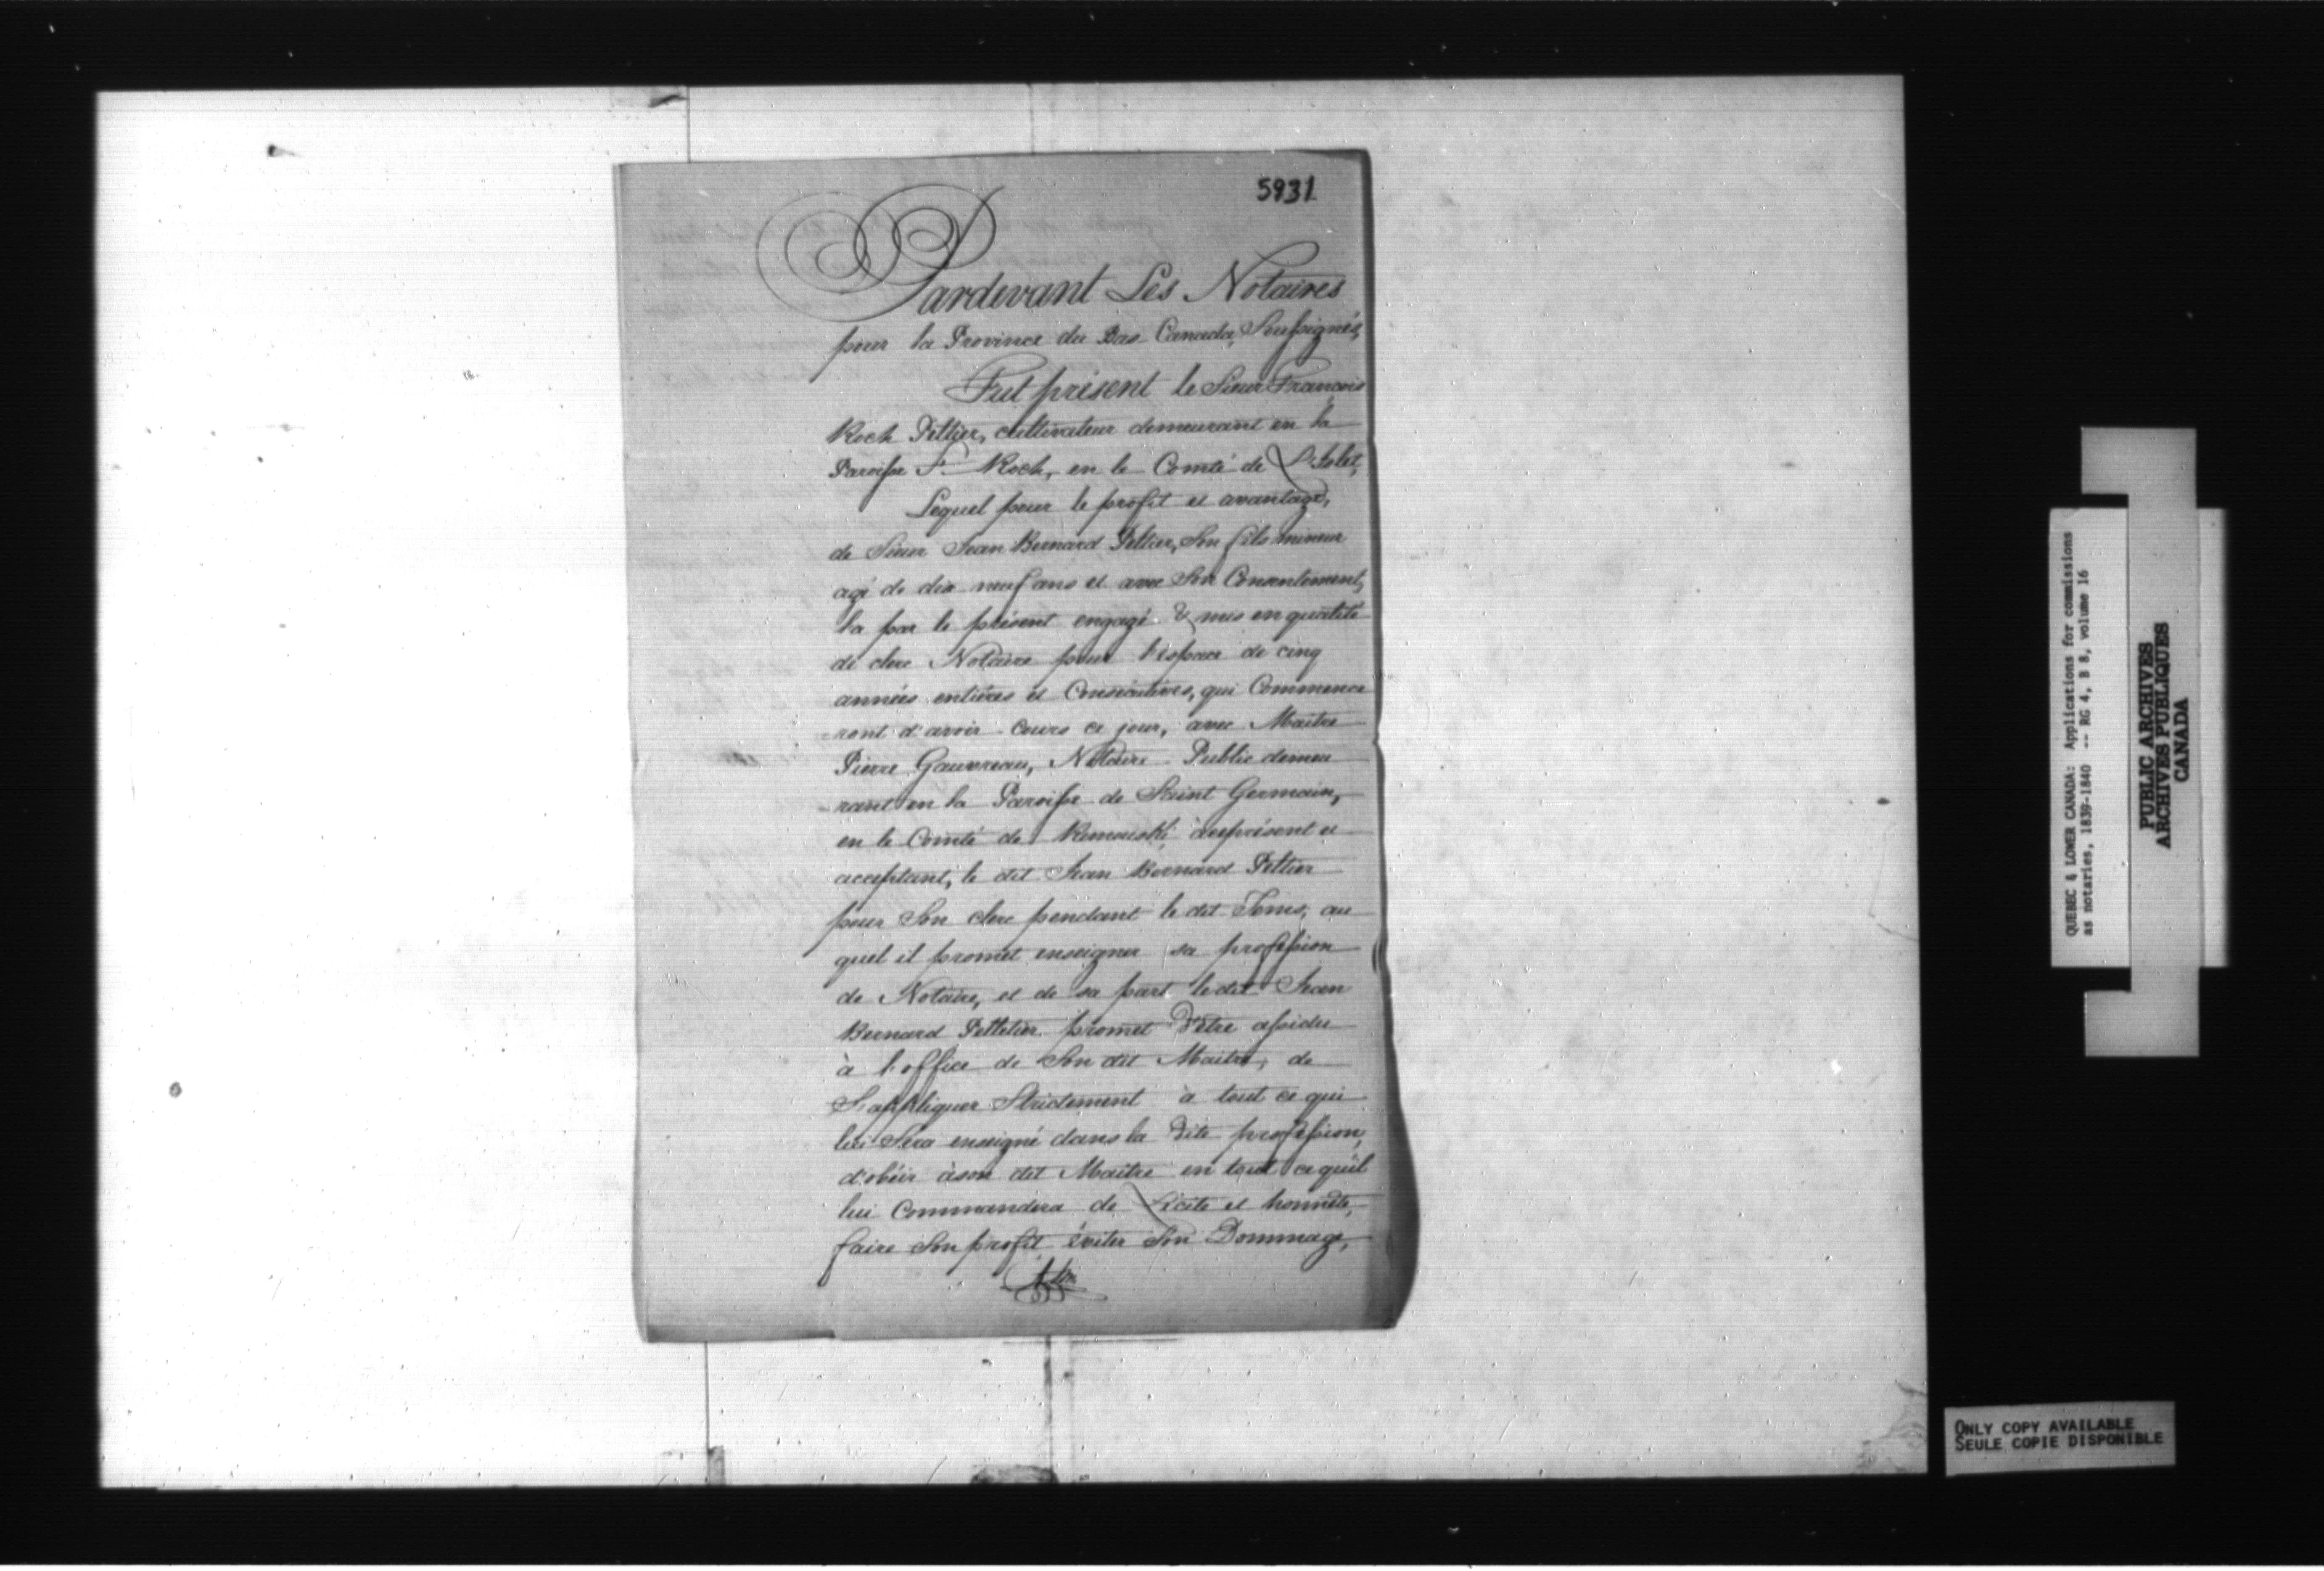 5931
Pardevant Les Notaires
pour la Province du Bas Canada, Soussignés,
Fut présent le Sieur François
Roch Peltier, cultivateur demeurant en la
Paroisse St Roch, en le Comté de L'islet,
Lequel pour le profit et avantage,
de Sieur Jean Bernard Peltier, Son fils mineur
agé de dix neuf ans et avec Son Consentement,
l'a par le présent engagé & mis en qualité
de clerc Notaire pour l'espace de cinq
années entières et Consécutives, qui Commence
-ront d'avoir cours ce jour, avec Maître
Pierre Gauvreau, Notaire Public demeu
-rant en la Paroisse de Saint Germain,
en le Comté de Rimouski, à ce présent et
acceptant, le dit Jean Bernard Peltier
pour Son clerc pendant le dit Tems, au
quel il promet enseigner sa profession
de Notaire, et de sa part le dit Jean
Bernard Pelletier promet d'être assidu
à l'office de Son dit Maitre, de
S'appliquer Strictement à tout ce qui
lui Sera enseigné dans la dite profession,
d'obéir à son dit Maître en tout ce qu'il
lui Commandera de Licite et honnête,
faire Son profit éviter Son Dommage,
QUEBEC & LOWER CANADA: Applications for commissions
as notaries, 1839-1840 -- RG 4, B 8, volume 16
PUBLIC ARCHIVES
ARCHIVES PUBLIQUES
CANADA
ONLY COPY AVAILABLE
SEULE COPIE DISPONIBLE